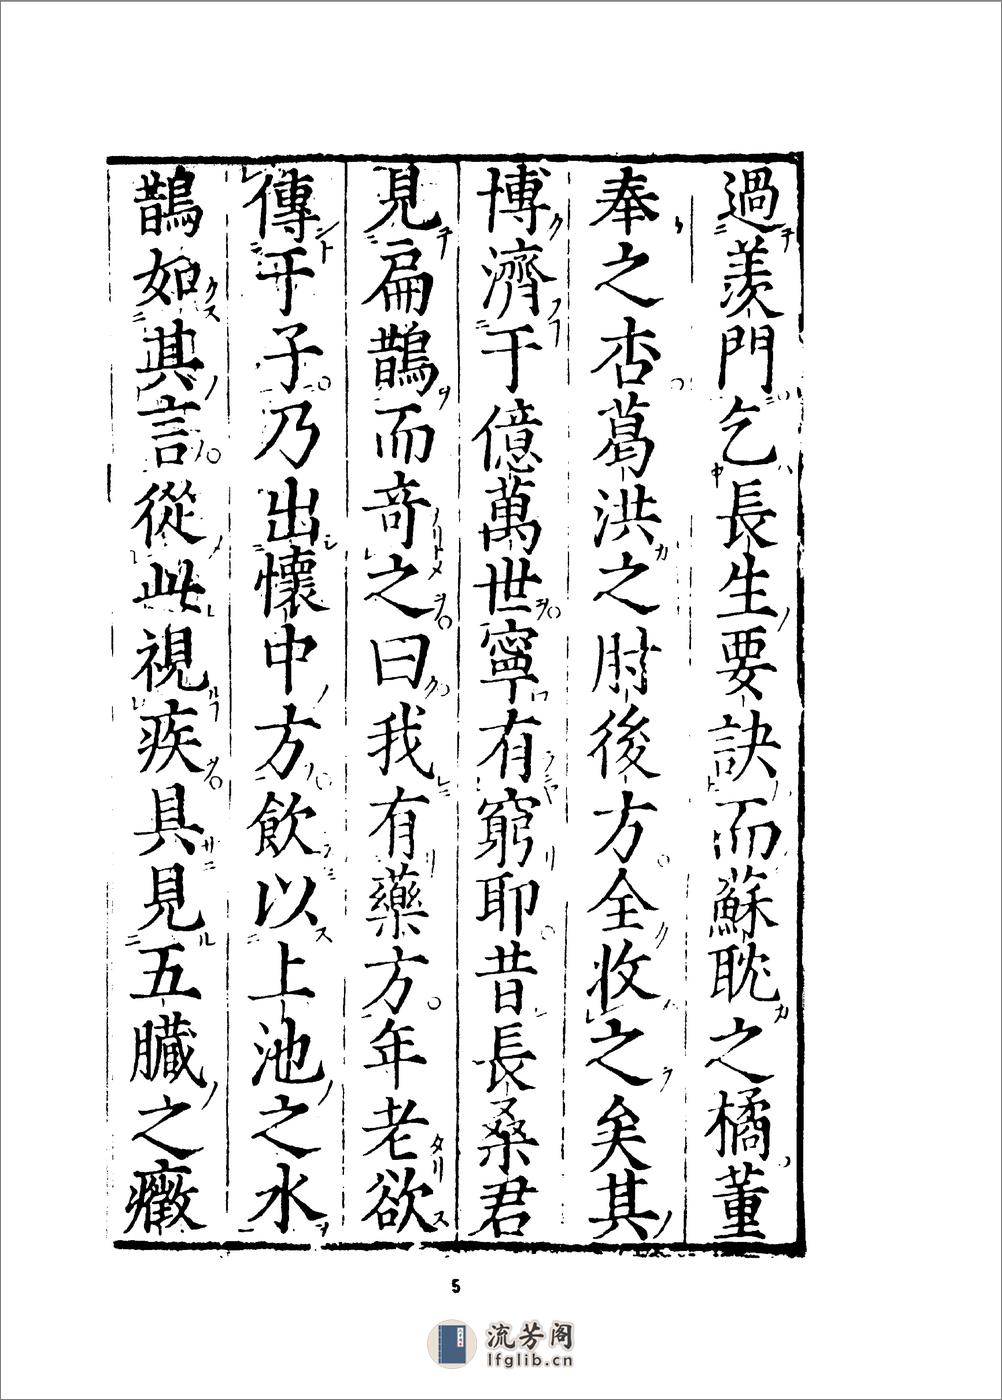 過羨門乞長生要訣而蘇耽之橘董
奉之杏葛洪之肘後方全收之矣其
博濟于億萬世寧有窮耶昔長桑君
見扁鵲而奇之曰我有藥方年老欲
傳于子乃出懷中方飲以上池之水
鵲如其言從此視疾具見五臟之癥
5
流芳阁
lfglib.cn